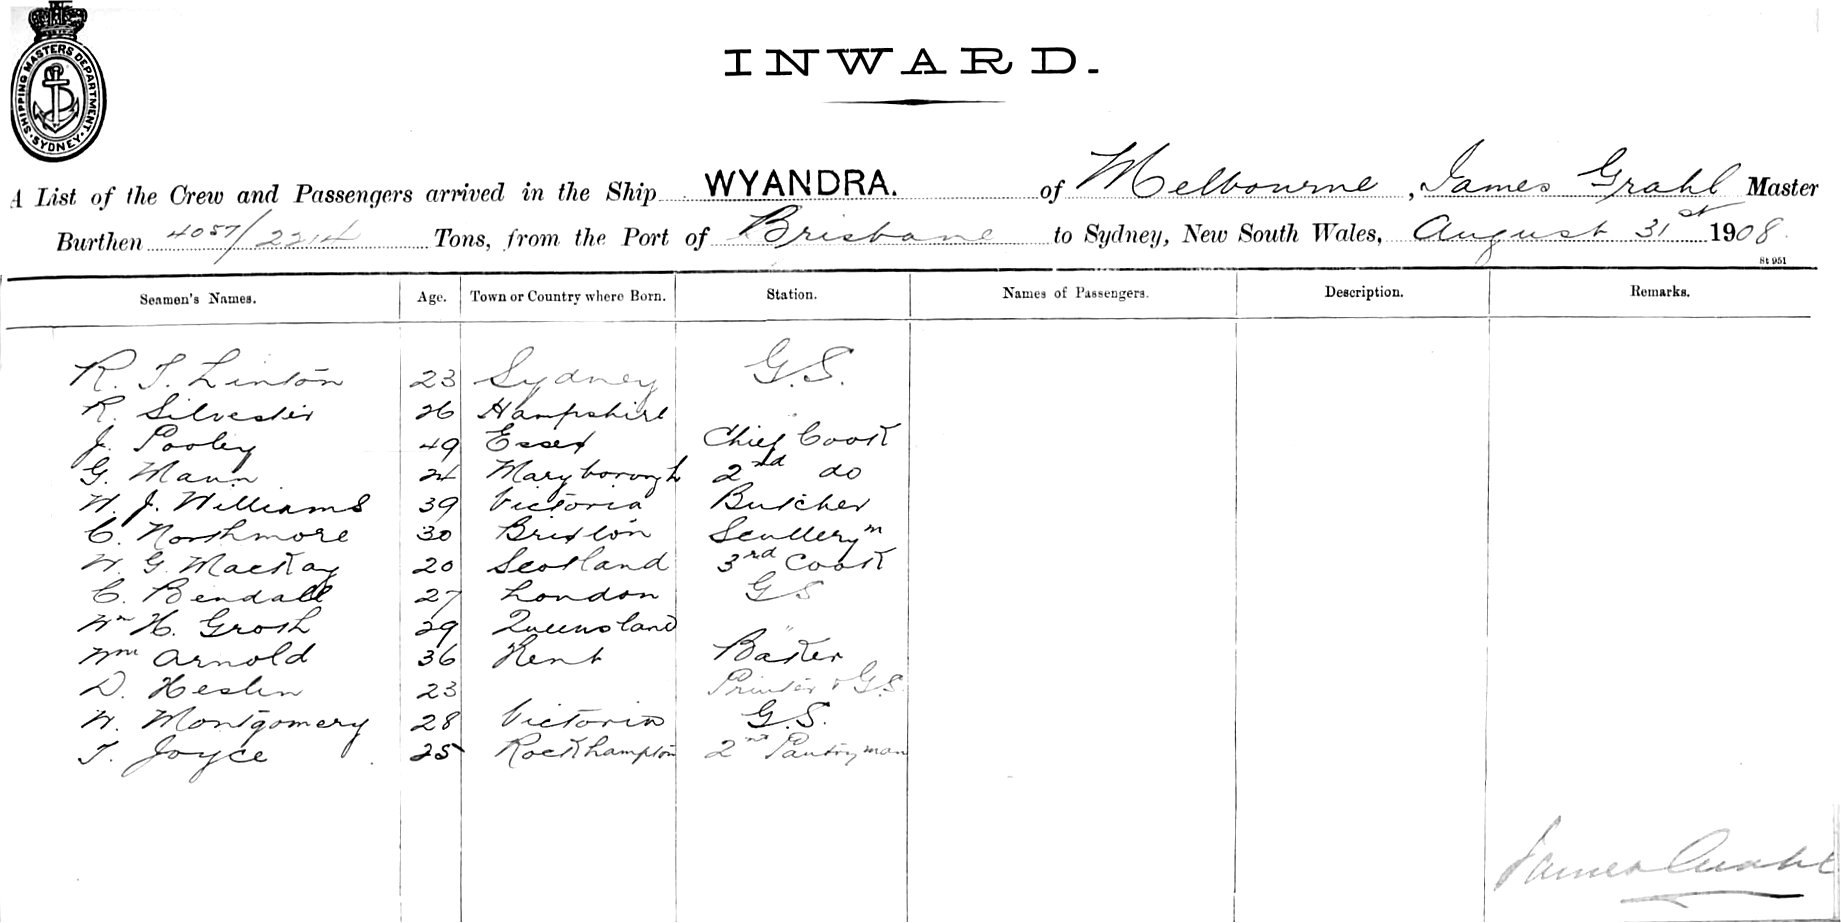 SHIPPING MASTERS DEPARTMENT · SYDNEY ·
INWARD.
A List of the Crew and Passengers arrived in the Ship WYANDRA. of Melbourne, James Grahl Master
Burthen 4057/2214 Tons, from the Port of Brisbane to Sydney, New South Wales, August 31st 1908.
St 951
Seamen's Names. Age. Town or Country where Born. Station. Names of Passengers. Description. Remarks.
R. T. Linton 23 Sydney G.S.
R. Silvester 26 Hampshire "
J. Pooley 49 Essex Chief Cook
G. Mann 24 Maryborough 2nd do
W. J. Williams 39 Victoria Butcher
C. Northmore 30 Brixton Scullerym
W. G. MacKay 20 Scotland 3rd Cook
C. Bendall 27 London GS
Wm H. Grosh 29 Queensland "
Wm Arnold 36 Kent Baker
D. Heslin 23 Printer & G.S.
W. Montgomery 28 Victoria G.S.
T. Joyce 25 Rockhampton 2nd Pantryman
James Grahl